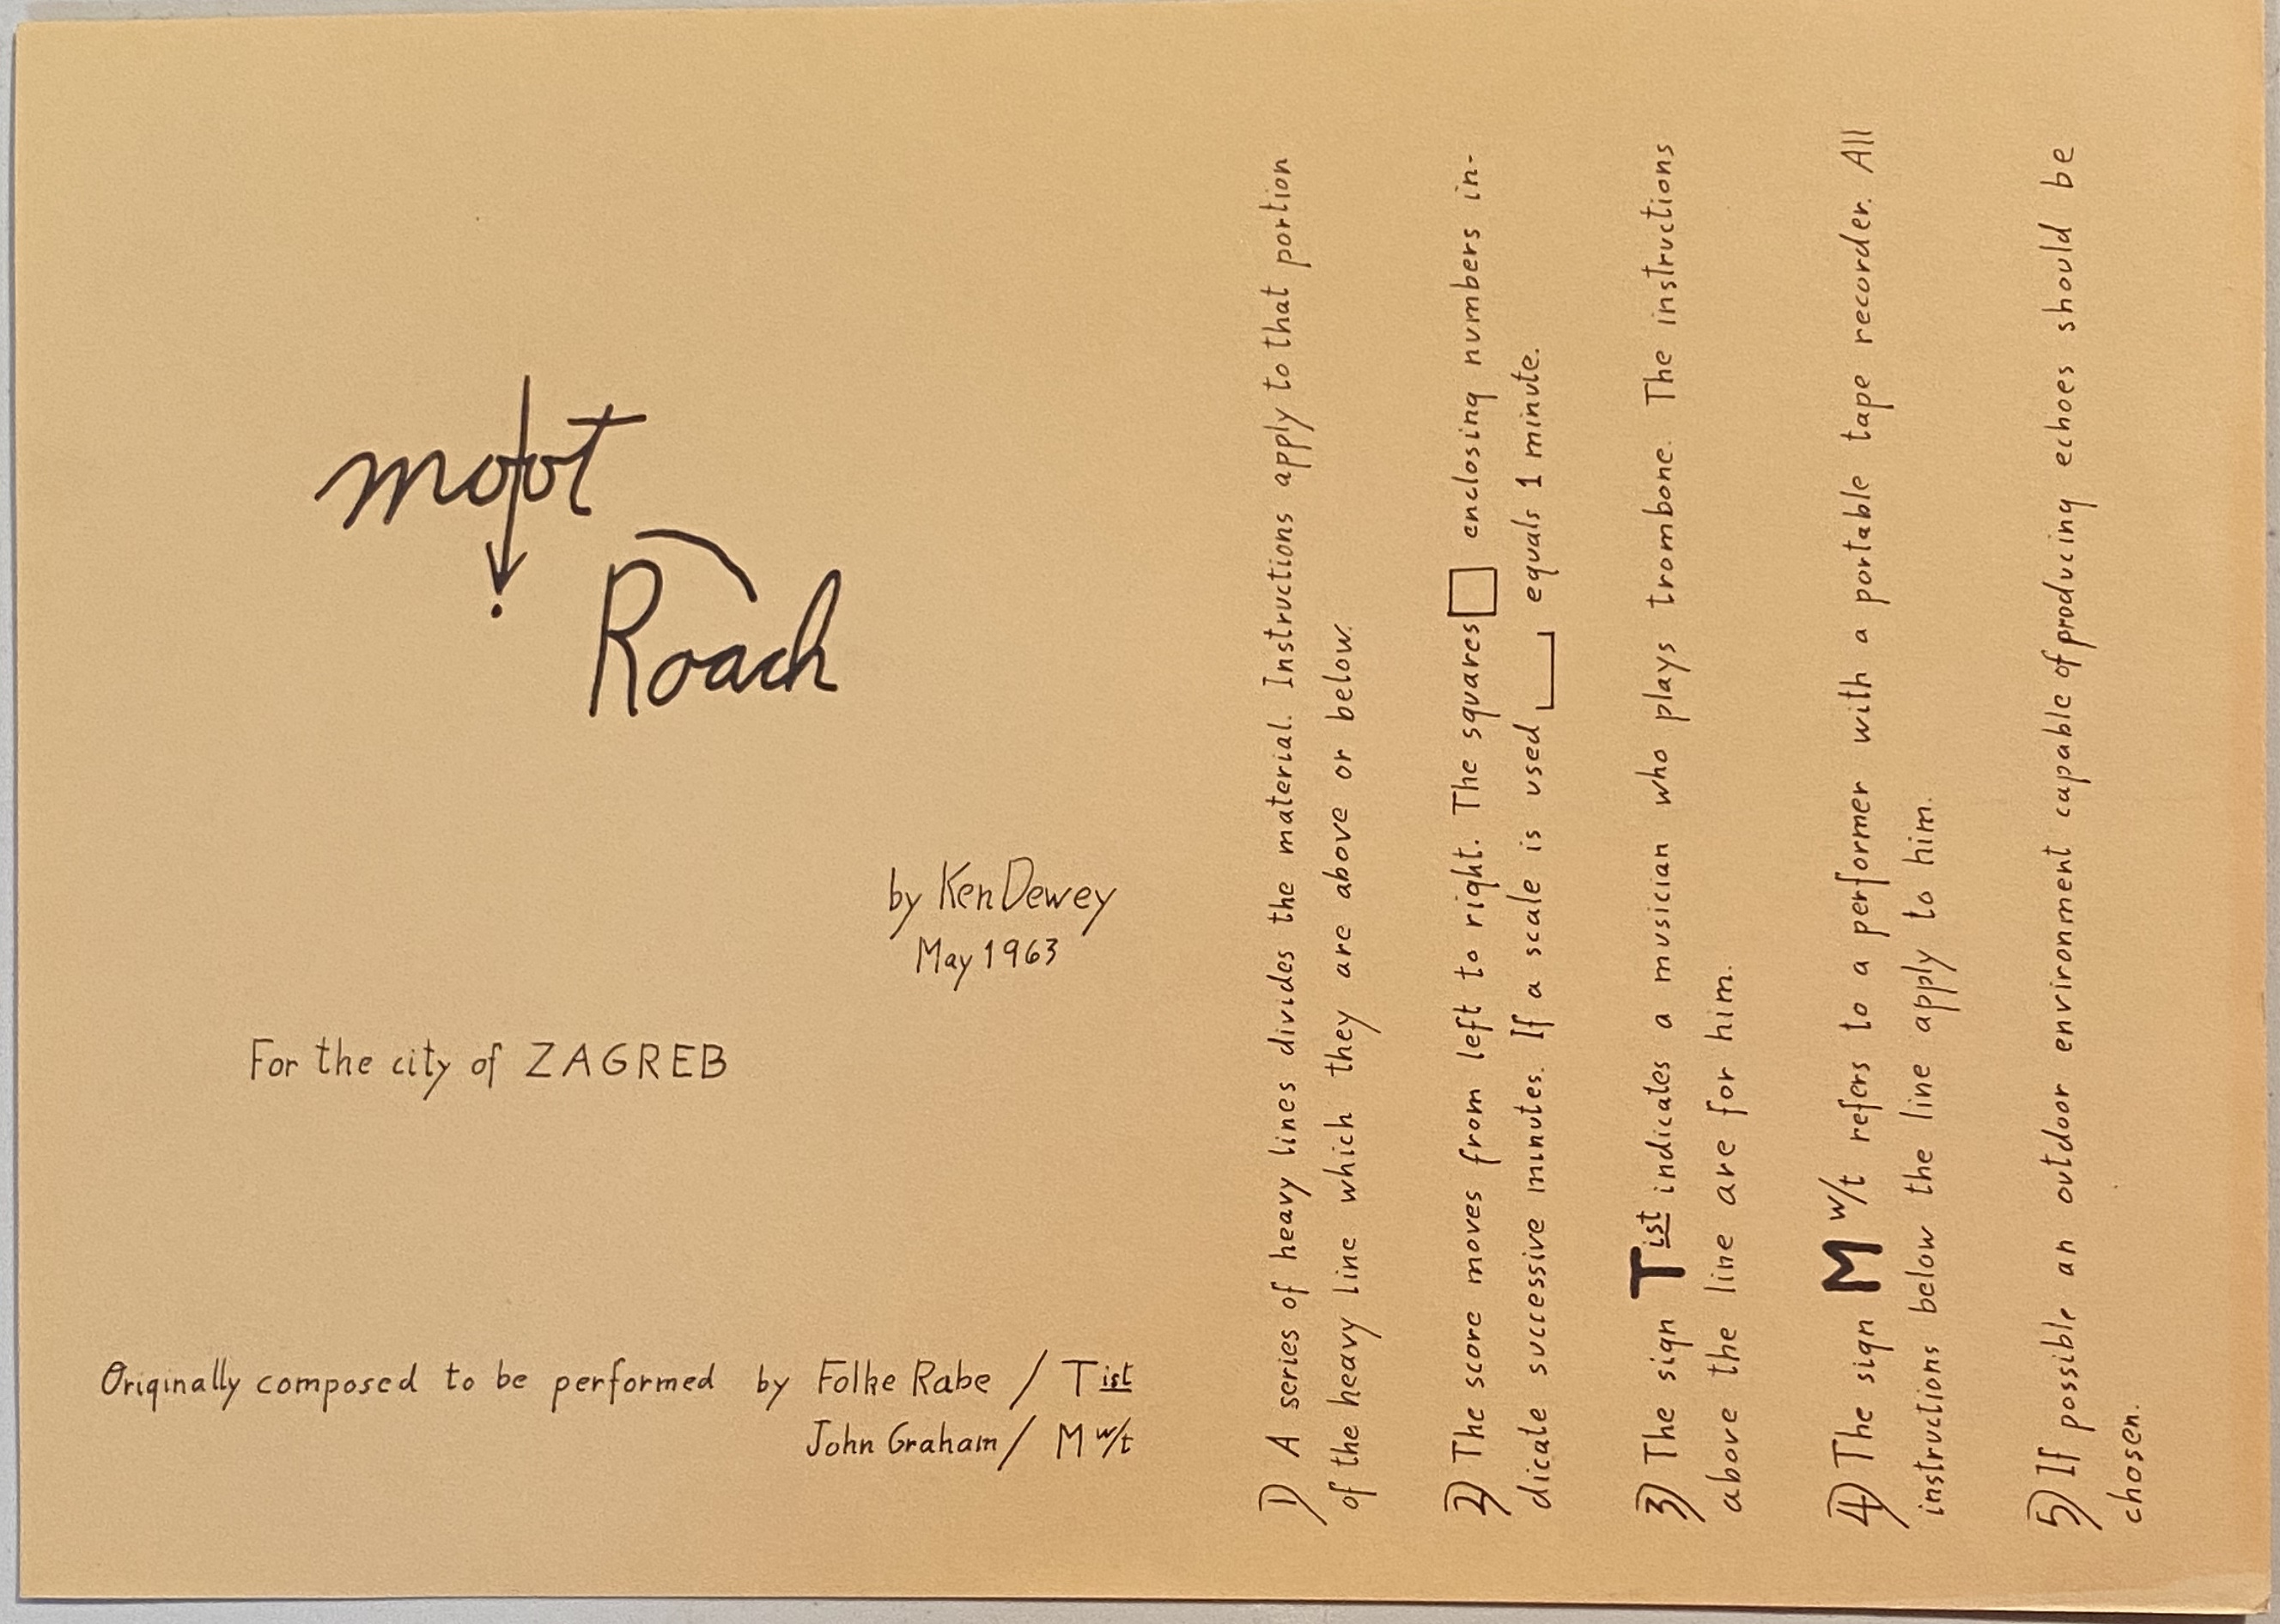 moot
Roach
by Ken Dewey
May 1963
For the city of ZAGREB
Originally composed to be performed by Folke Rabe / Tist
John Graham / M w/t
1) A series of heavy lines divides the material. Instructions apply to that portion
of the heavy line which they are above or below.
2) The score moves from left to right. The squares □ enclosing numbers in-
dicate successive minutes. If a scale is used ⎵ equals 1 minute.
3) The sign Tist indicates a musician who plays trombone. The instructions
above the line are for him.
4) The sign M w/t refers to a performer with a portable tape recorder. All
instructions below the line apply to him.
5) If possible an outdoor environment capable of producing echoes should be
chosen.